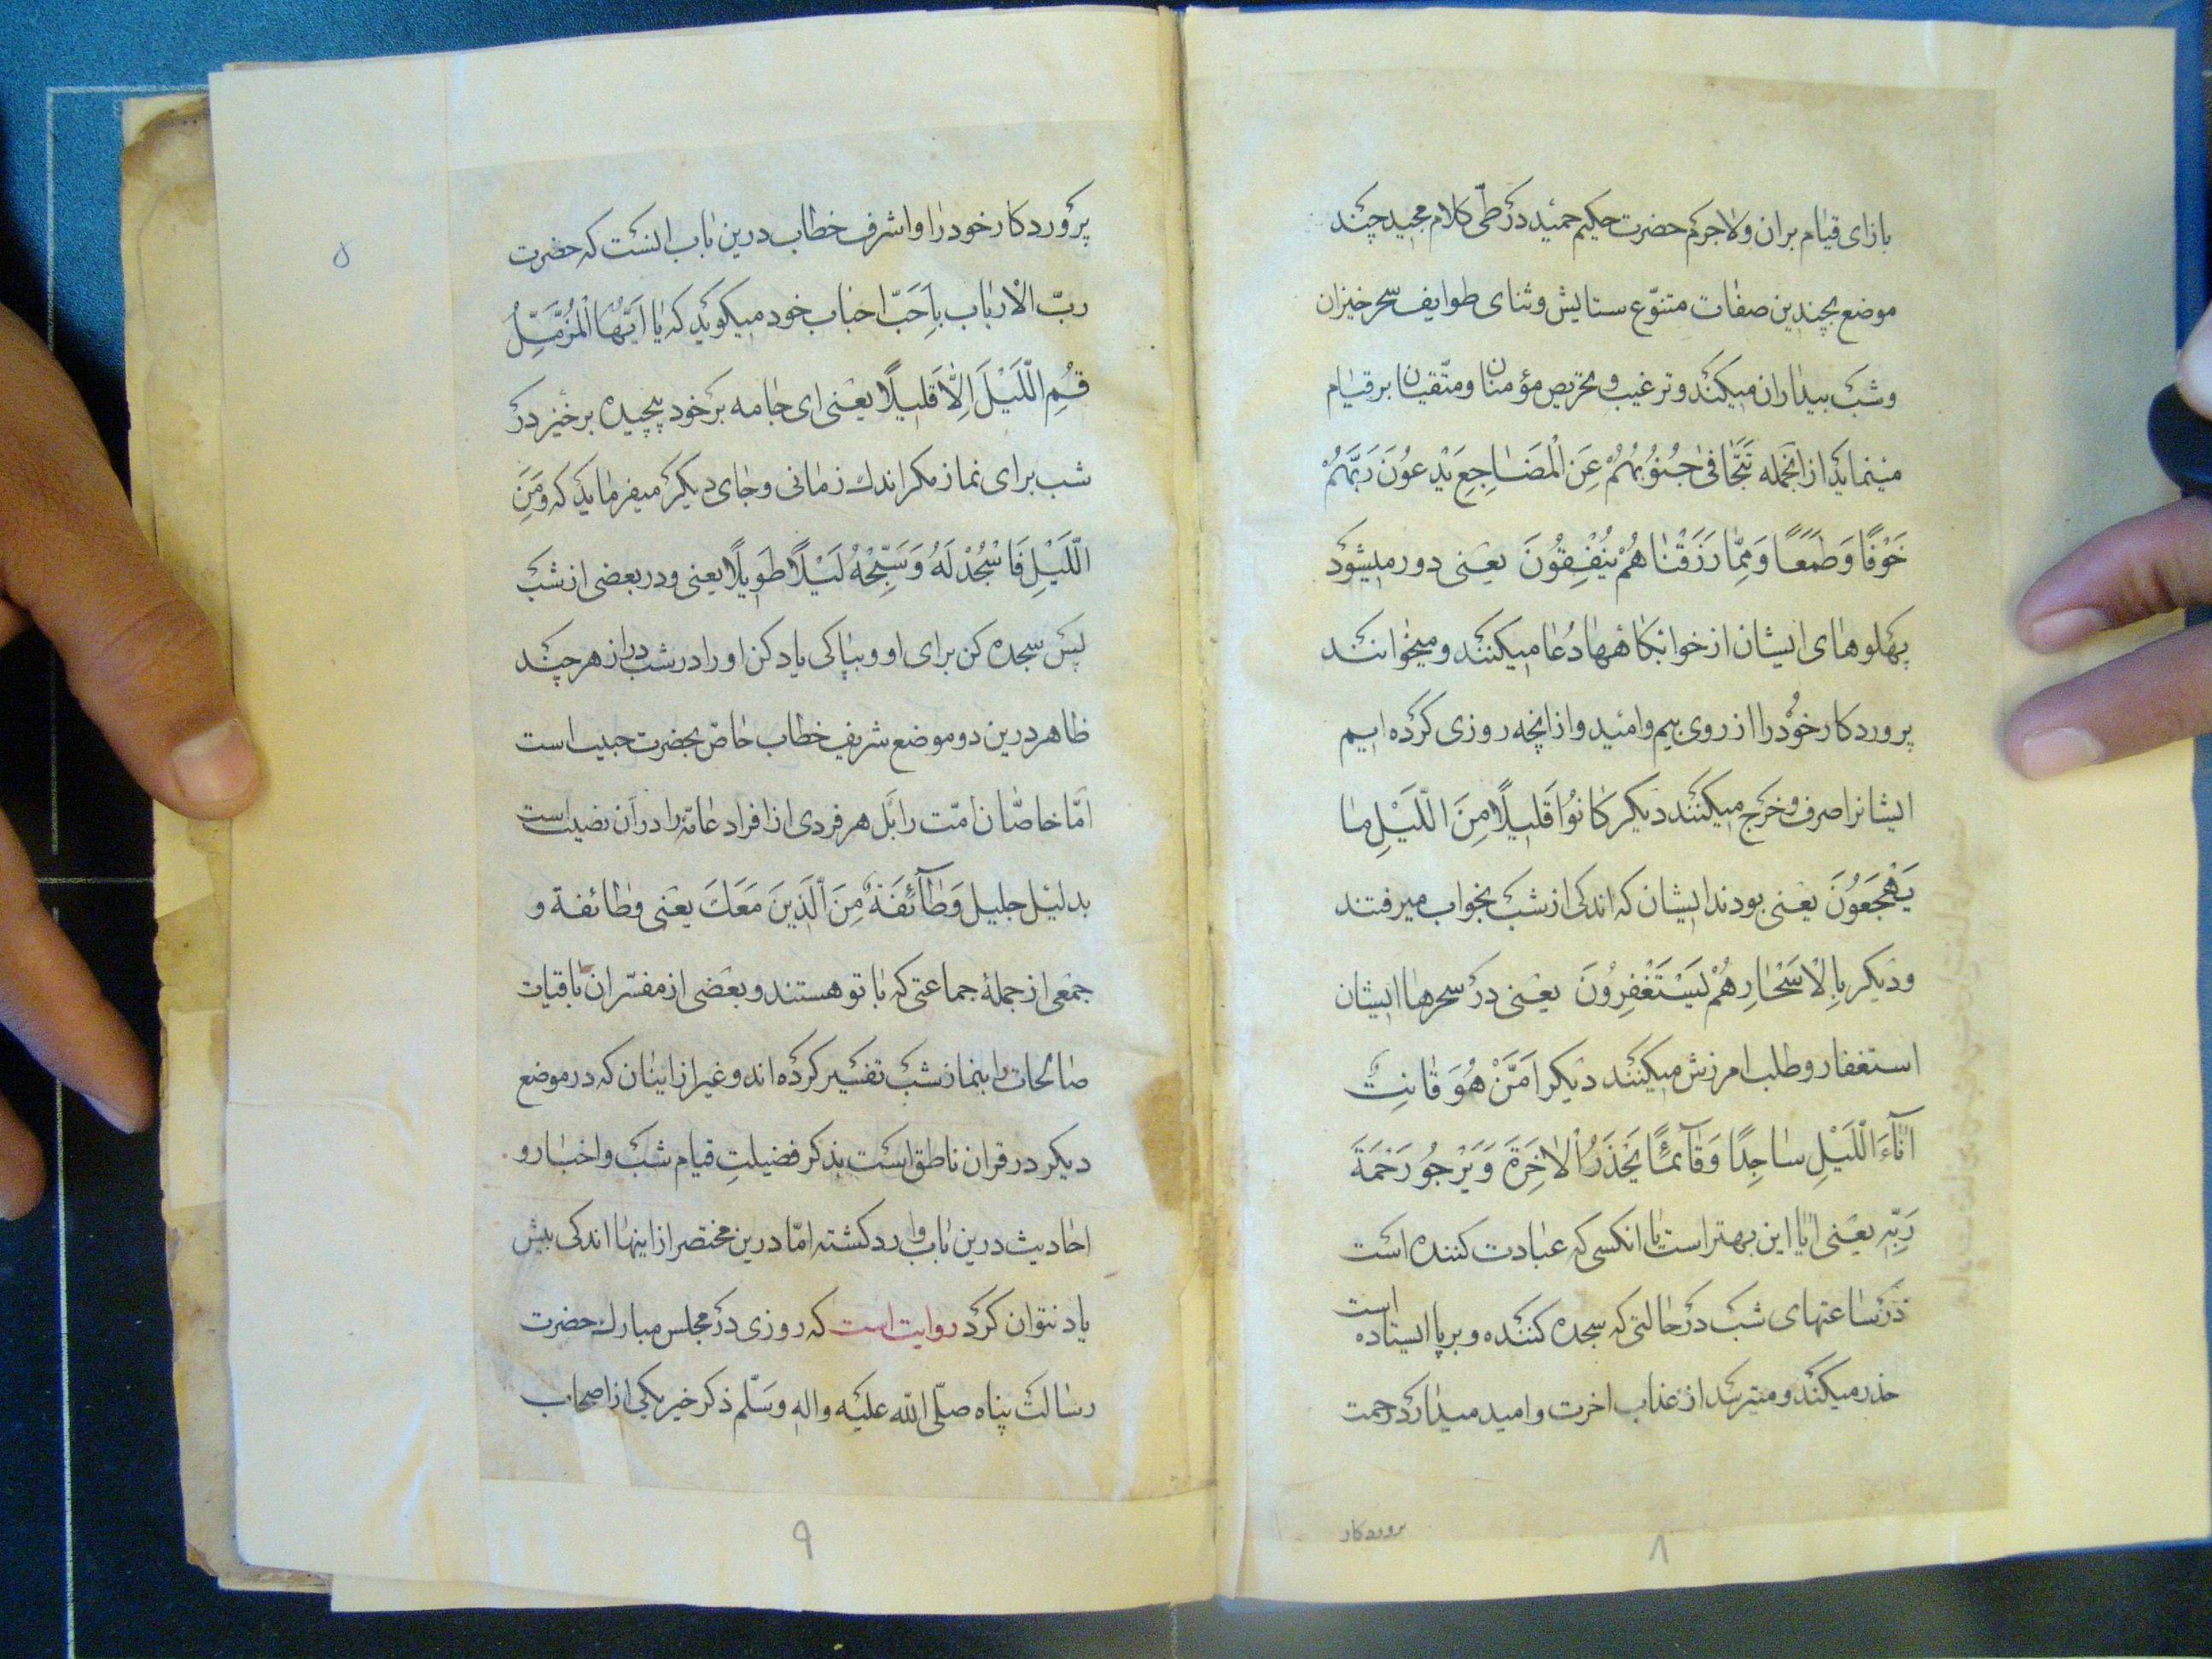 بازای قیام بران ولاجرم حضرت حکیم حمید در طیّ کلام مجید چند
موضع بچندین صفات متنوّع ستایش وثنای طوایف سحرخیزان
وشب بیداران میکند وترغیب وتحریص مؤمنان ومتّقیان بر قیام
مینماید ازانجمله تَتَجَافىٰ جُنُوُبُهُمْ عَنِ الْمَضَاجِعِ يَدْعوُنَ رَبَّهُمْ
خَوْفًا وَطَمَعًا وَمِمّٰا رَزَقْنٰاهُمْ يُنْفِقُونَ یعنی دور میشود
پهلوهای ایشان از خوابکاهها دُعا میکنند ومیخوانند
پروردکار خوُد را از روی بیم وامید وازانچه روزی کرده ایم
ایشانرا صرف وخرج میکنند دیکر کٰانوُا قَلیلًا مِنَ الَّلیْلِ مٰا
یَهْجَعوُنَ یعنی بودند ایشان که اندکی از شب بخواب میرفتند
ودیکر بِالْاَسْحٰارِ هُمْ یَسْتَغْفِروُنَ یعنی در سحرها ایشان
استغفار وطلب امرزش میکنند دیکر اَمَّنْ هُوَ قٰانِتٌ
اٰنٰآءَ الَّلیْلِ سٰاجِدًا وَقٰآئمًا یَحْذَرُ الْاٰخِرَةَ وَیَرْجوُ رَحْمَةَ
رَبِّهِ یعنی ایا این بهتر است یا انکسی که عبادت کننده است
در ساعتهای شب در حالتی که سجده کننده وبرپا ایستاده است
حذر میکند ومیترسد از عذاب اخرت وامید میدارد رحمت
پروردکار
۸
۵
پروردکار خود را واشرف خطاب درین باب انست که حضرت
ربّ الْارباب باَحَبّ احباب خود میکوید که یٰا اَیُّهَا الْمُزَّمِّلُ
قُمِ الَّلیْلَ اِلّٰا قَلیلًا یعنی ای جامه بر خود پیچیده برخیز در
شب برای نماز مکر اندك زمانی وجای دیکر میفرماید که وَمِنَ
الَّلیْلِ فَاسْجُدْ لَهُ وَسَبِّحْهُ لَیْلًا طَویلًا یعنی ودر بعضی از شب
پس سجده کن برای او وبپاکی یاد کن او را در شب دراز هر چند
ظاهر درین دو موضع شریف خطاب خاصّ بحضرت حبیب است
امّا خاصّان امّت را بَل هر فردی از افراد عامّه را دران نصیب است
بدلیل جلیل وَطٰآئِفَةٌ مِنَ الَّذینَ مَعَكَ یعنی وطائفة و
جمعی از جملهٔ جماعتی که با تو هستند وبعضی از مفسّران باقیات
صالحات را بنماز شب تفسیر کرده اند وغیر ازاینان که در موضع
دیکر در قران ناطق است بذکر فضیلتِ قیام شب واخبار و
احادیث درین باب وارد کشته امّا درین مختصر ازاینها اندکی بیش
یاد نتوان کرد روایت است که روزی در مجلس مبارك حضرت
رسالت پناه صلّی الله علیه واله وسَلّم ذکر خیر یکی از اصحاب
۹